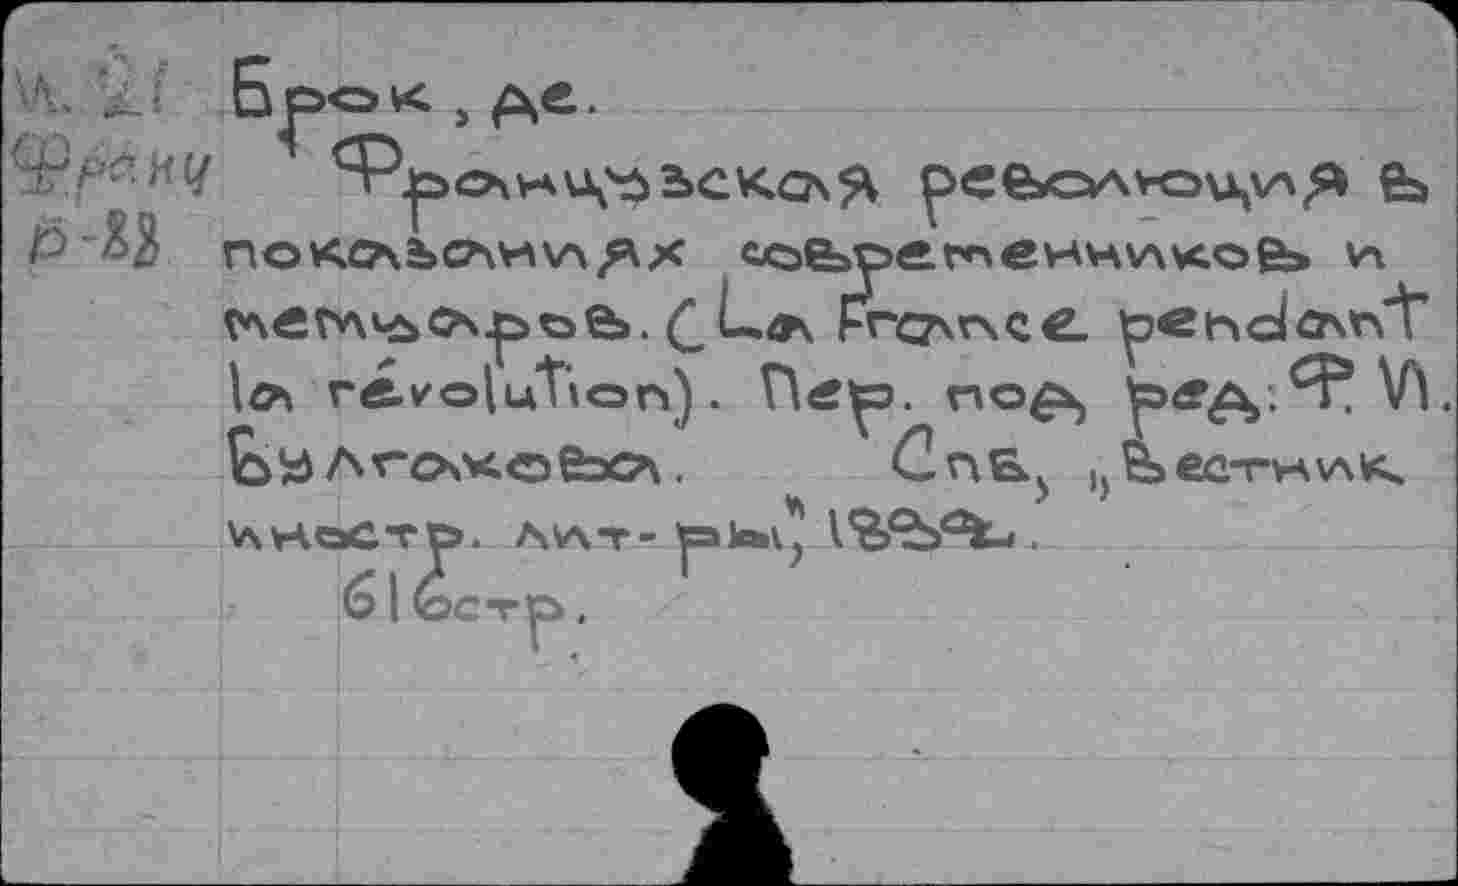 Брок, де.
Франц
Французская революция в
показаниях современников и
мемуаров. (La France pendant
la révolution). Пер. под ред. Ф. И.
Булгакова. СПБ, „Вестник
иностр. лит-ры",
61 стр.